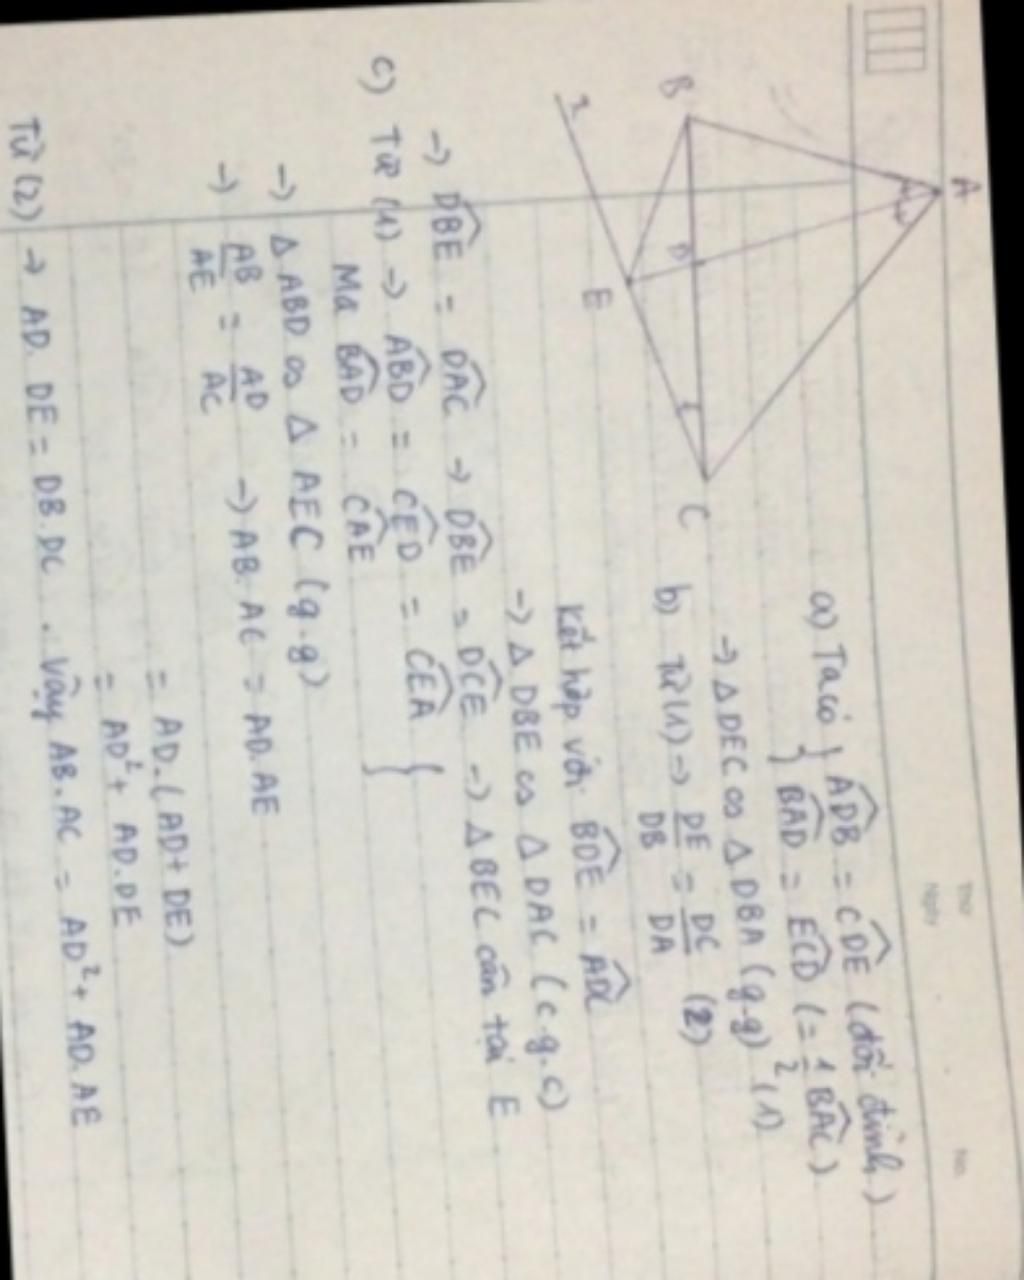 Thứ
Ngày
No.
A
B
D
C
E
x
a) Ta có } ADB^ = CDE^ (đối đỉnh)
} BAD^ = ECD^ (= 1/2 BAC^)
→ Δ DEC ∽ Δ DBA (g.g) (1)
b) Từ (1) → DE/DB = DC/DA (2)
Kết hợp với BDE^ = ADC^
→ Δ DBE ∽ Δ DAC (c.g.c)
→ DBE^ = DAC^ → DBE^ = DCE^ → Δ BEC cân tại E
c) Từ (1) → ABD^ = CED^ = CEA^ }
Mà BAD^ = CAE^ }
→ Δ ABD ∽ Δ AEC (g.g)
→ AB/AE = AD/AC → AB.AC = AD.AE
= AD.(AD + DE)
= AD² + AD.DE
Từ (2) → AD.DE = DB.DC. Vậy AB.AC = AD² + AD.AE